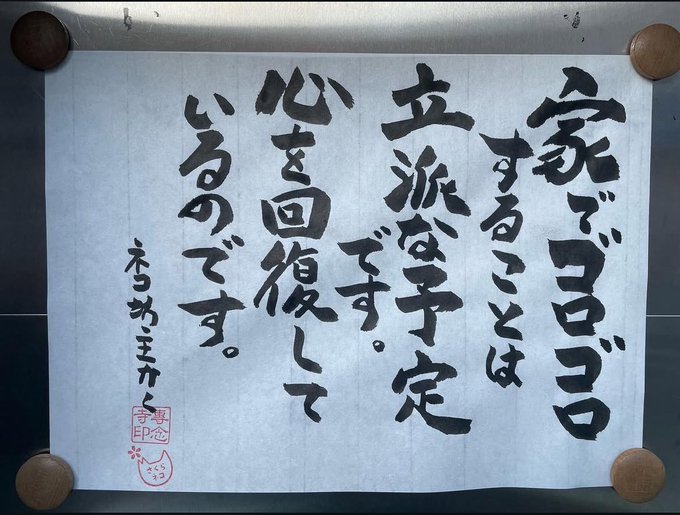 家でゴロゴロ
することは
立派な予定
です。
心を回復して
いるのです。
ネコ坊主かく
専念寺印
さくらネコ